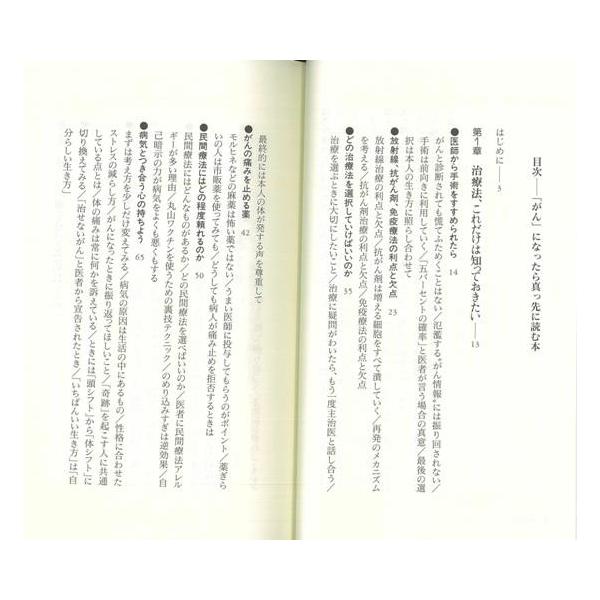 目次──「がん」になったら真っ先に読む本
はじめに──3
第1章 治療法、これだけは知っておきたい──13
●医師から手術をすすめられたら 14
がんと診断されても慌てふためくことはない/氾濫する“がん情報”には振り回されない/
手術は前向きに利用していく/「五パーセントの確率」と医者が言う場合の真意/最後の選
択は本人の生き方に照らし合わせて
●放射線、抗がん剤、免疫療法の利点と欠点 23
放射線治療の利点と欠点/抗がん剤は増える細胞をすべて潰していく/再発のメカニズム
を考える/抗がん剤治療の利点と欠点/免疫療法の利点と欠点
●どの治療法を選択していけばいいのか 35
治療を選ぶときに大切にしたいこと/治療に疑問がわいたら、もう一度主治医と話し合う/
最終的には本人の体が発する声を尊重して
●がんの痛みを止める薬 42
モルヒネなどの麻薬は怖い薬ではない/うまい医師に投与してもらうのがポイント/薬ぎら
いの人は市販薬を使ってみても/どうしても病人が痛み止めを拒否するときは
●民間療法にはどの程度頼れるのか 50
民間療法にはどんなものがあるか/どの民間療法を選べばいいのか/医者に民間療法アレル
ギーが多い理由/丸山ワクチンを使うための裏技テクニック/のめり込みすぎは逆効果/自
己暗示の力が病気をよくも悪くもする
●病気とつき合う心の持ちよう 65
まずは考え方を少しだけ変えてみる/病気の原因は生活の中にあるもの/性格に合わせた
ストレスの減らし方/がんになったときに振り返ってほしいこと/「奇跡」を起こす人に共通
している点とは/体の痛みは常に何かを訴えている/ときには「頭シフト」から「体シフト」に
切り換えてみる/「治せないがん」と医者から宣告されたとき/「いちばんいい生き方」は「自
分らしい生き方」